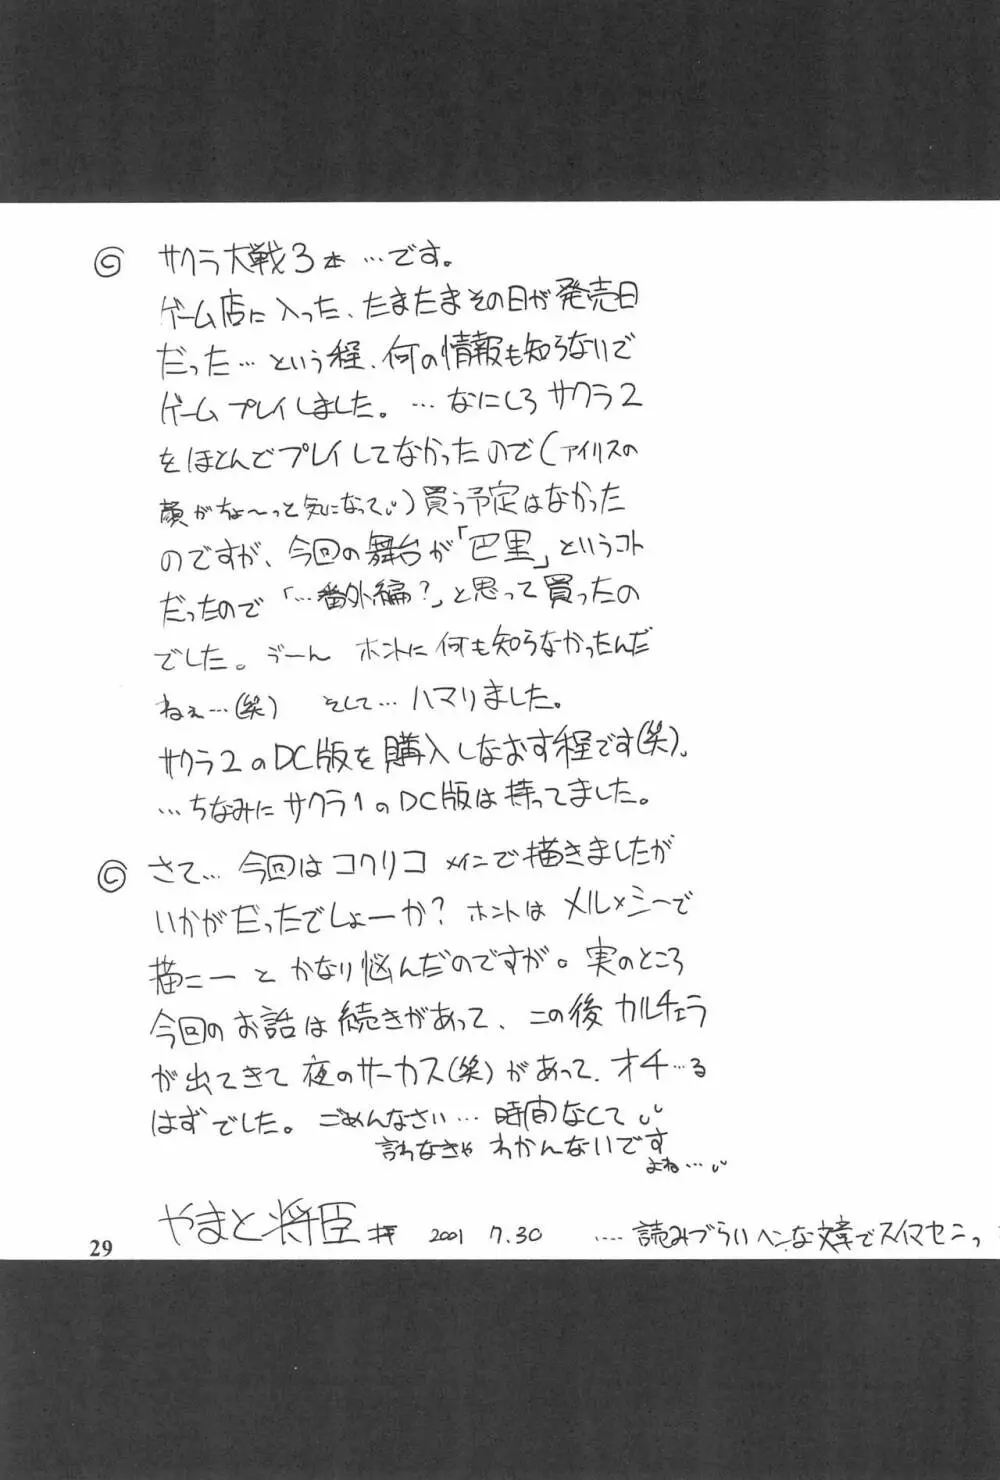 ◎ サクラ大戦3本…です。
ゲーム店に入った、たまたまその日が発売日
だった…という程、何の情報も知らないで
ゲームプレイしました。…なにしろサクラ2
をほとんどプレイしてなかったので(アイリスの
顔がちょ〜っと気になって)買う予定はなかった
のですが、今回の舞台が「巴里」というコト
だったので「…番外編?」と思って買ったの
でした。うーん ホントに何も知らなかったんだ
ねぇ…(笑) そして…ハマりました。
サクラ2のDC版を購入しなおす程です(笑)。
…ちなみにサクラ1のDC版は持ってました。
◎ さて…今回はコクリコメインで描きましたが
いかがだったでしょーか? ホントはメル×シーで
描こーとかなり悩んだのですが。実のところ
今回のお話は続きがあって、この後カルチェラ
が出てきて夜のサーカス(笑)があって、オチ…る
はずでした。ごめんなさい…時間なくて
言わなきゃわかんないです
よね…
やまと将臣 拝 2001 7.30 ‥‥読みづらいヘンな文章でスイマセンっ
29